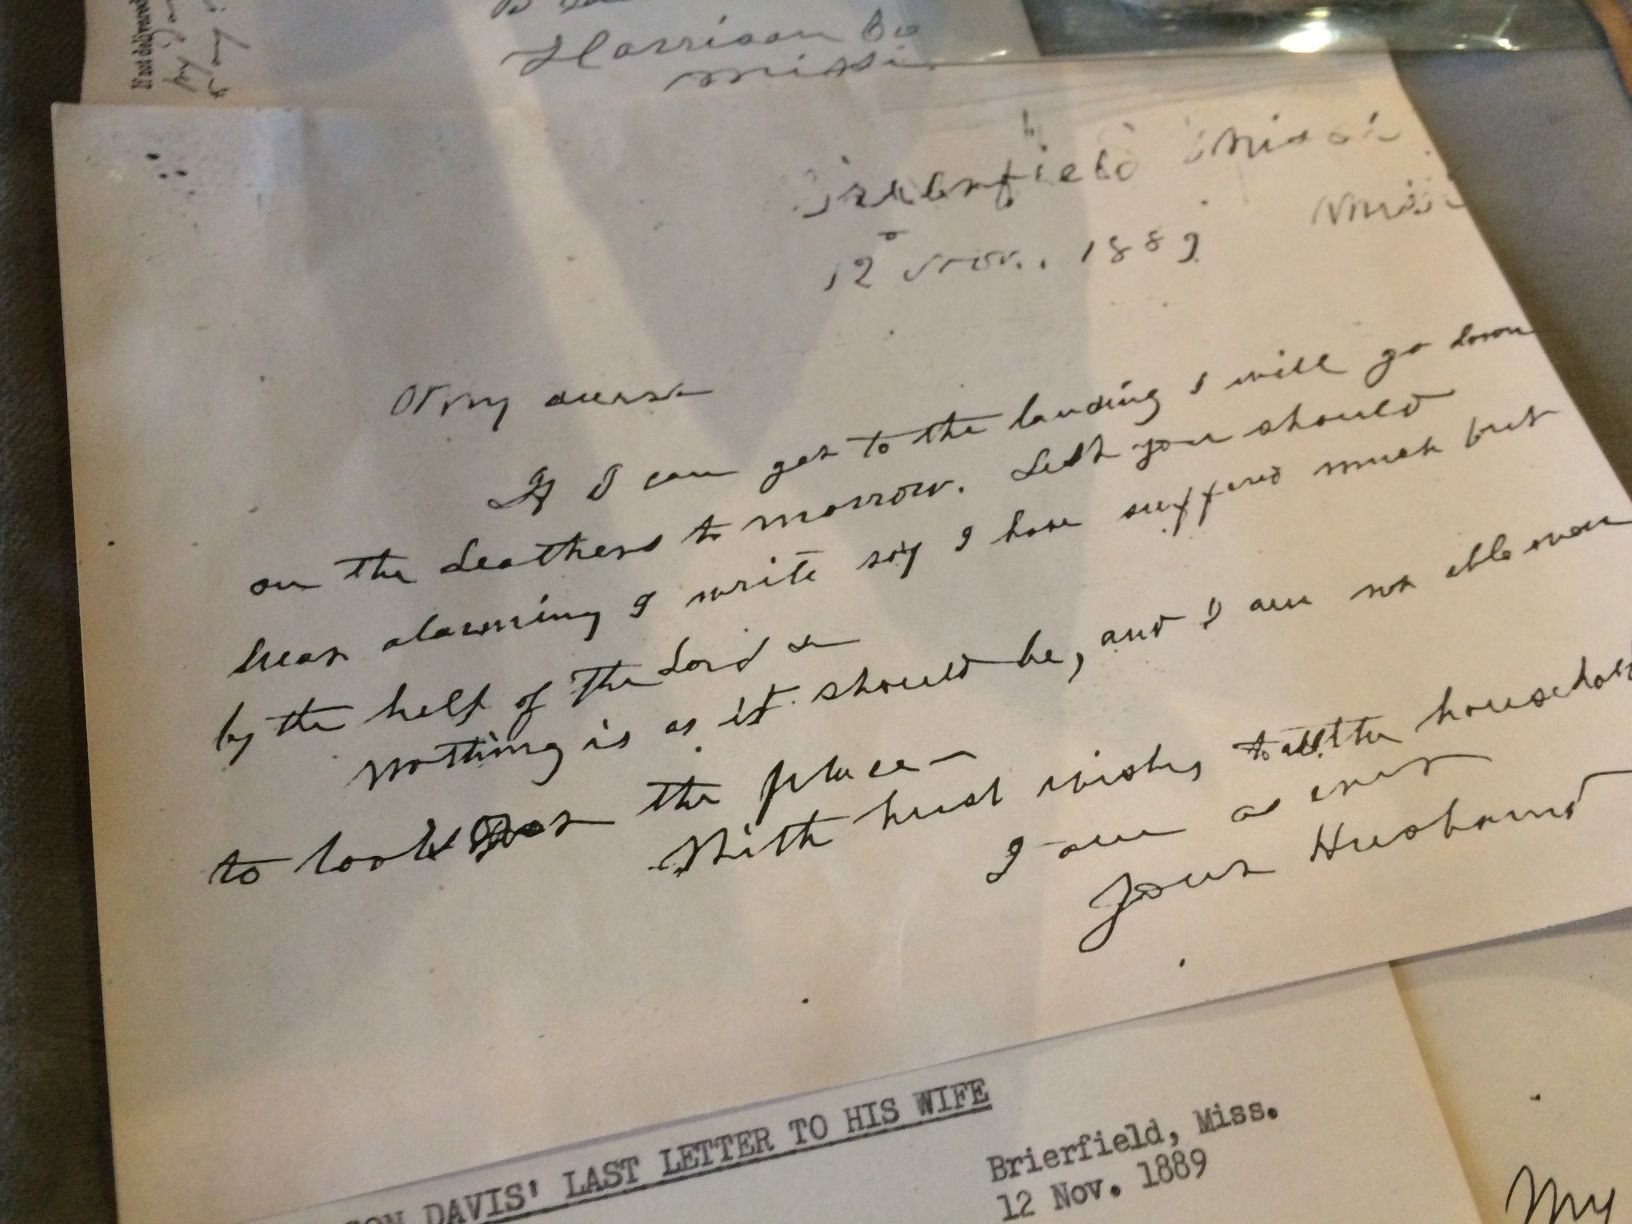 If not delivered
Harrison Co
Missi
Brierfield Miss
Missi
12 Nov., 1889
My dearest
If I can get to the landing I will go down
on the Leathers to morrow. Lest you should
hear alarming I write say I have suffered much but
by the help of the Lord
Nothing is as it should be, and I am not able even
to look at the place
With best wishes to all the household
I am as ever
Your Husband
ON DAVIS' LAST LETTER TO HIS WIFE
Brierfield, Miss.
12 Nov. 1889
My